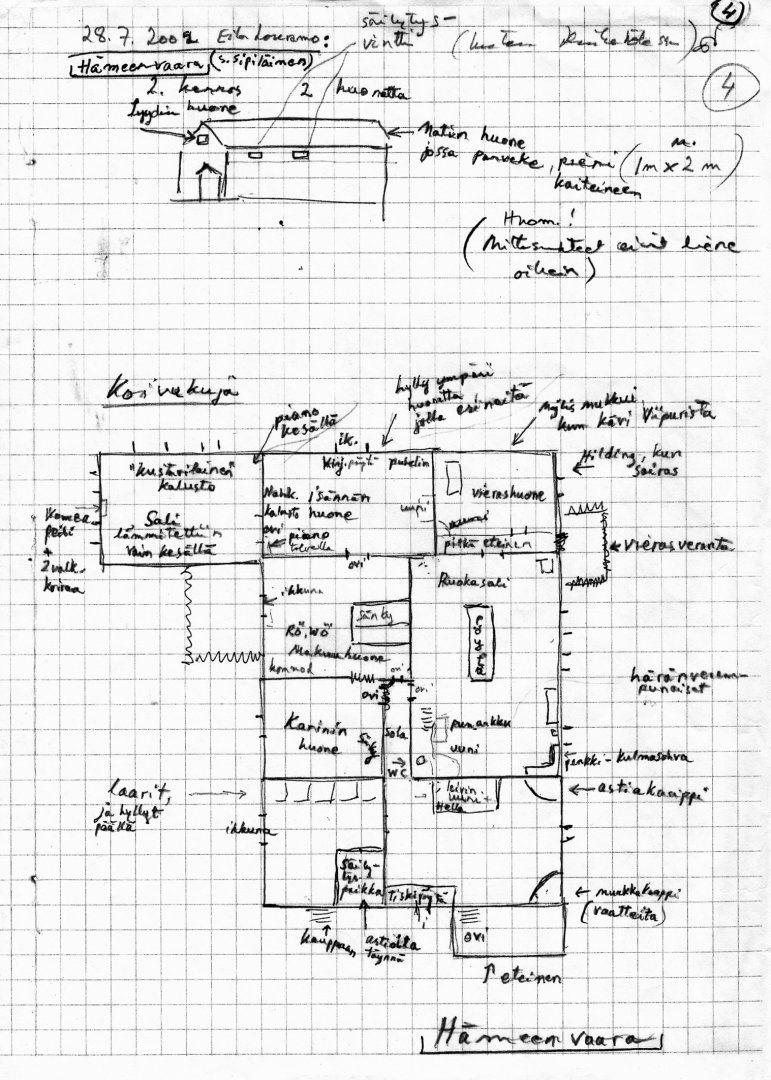 4
28.7.2002 Eila Louramo:
säilytys-
vintti
4
Hämeenvaara (s. Sipiläinen)
2. kerros
2 huonetta
Lyydin huone
Matin huone
jossa parveke, pieni
kaiteineen
(n. 1m x 2m)
(Huom.!
Mittasuhteet eivät liene
oikein)
Koivukuja
piano
kesällä
ik.
hylly ympäri
huonetta
jolla esineitä
myös mukkui
kun kävi Viipurista
Hilding, kun
sairas
"Kustavilainen"
kalusto
Sali
lämmitettiin
vain kesällä
2 valk.
koiraa
Kirj. pöytä
puhelin
Nahk.
kalusto
isännän
huone
ovi
piano
talvella
vierashuone
pitkä eteinen
vierasveranta
ovi
ikkuna
Ruokasali
sänky
RÖ, WÖ
Makuuhuone
kommod
ovi
ovi
ovi
häränveren-
punaiset
Karinin
huone
sänky
sola
WC
uuni
penkki - kulmasohva
laarit,
ja hyllyt
päällä
ikkuna
leivin
uuni +
Hella
astiakaappi
säily-
tys-
paikka
Tiskipöytä
nurkkakaappi
(vaatteita)
ovi
kauppaan
astioita
täynnä
eteinen
Hämeenvaara